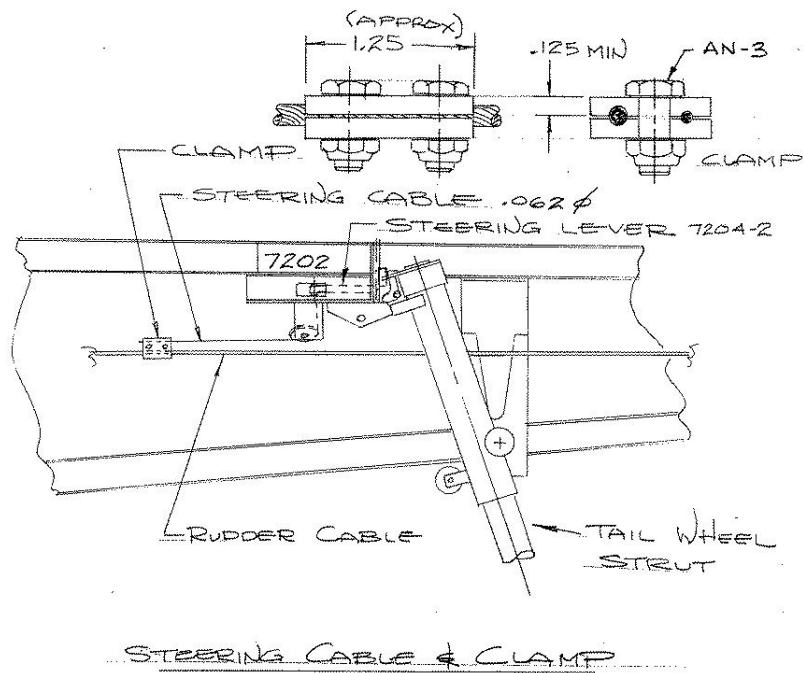 (APPROX)
1.25
.125 MIN
AN-3
CLAMP
CLAMP
STEERING CABLE .062 ϕ
STEERING LEVER 7204-2
7202
RUDDER CABLE
TAIL WHEEL
STRUT
STEERING CABLE & CLAMP